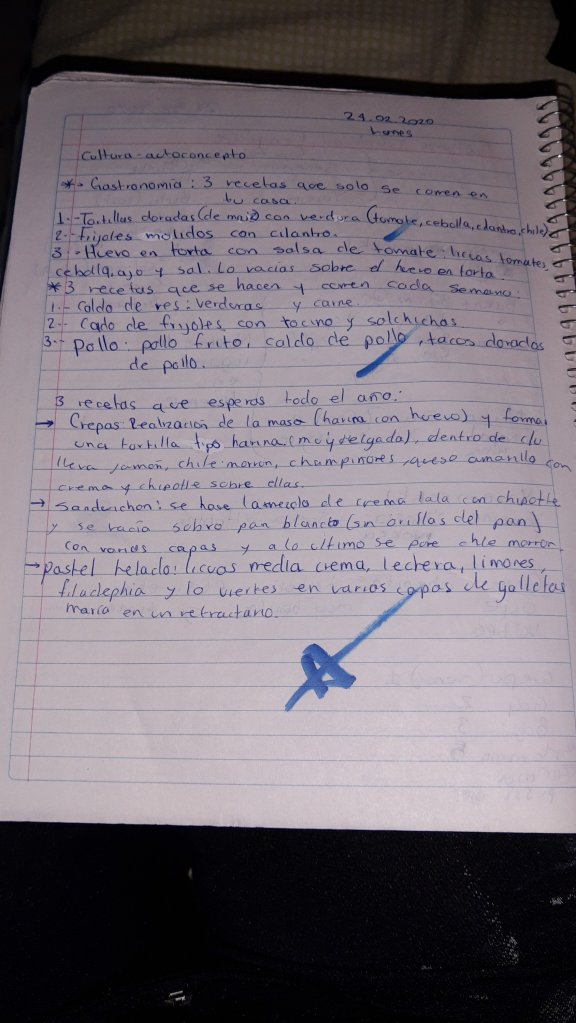 24.02.2020
Lunes
Cultura-autoconcepto
*→ Gastronomía: 3 recetas que solo se comen en
tu casa.
1.-Tortillas doradas (de maiz) con verdura (tomate, cebolla, cilantro, chile)
2.- Frijoles molidos con cilantro.
3.- Huevo en torta con salsa de tomate: licuas tomates,
cebolla, ajo y sal. Lo vacias sobre el huevo en torta
*3 recetas que se hacen y comen cada semana:
1.- Caldo de res: verduras y carne.
2.- Cado de frijoles con tocino y salchichas
3.- Pollo: pollo frito, caldo de pollo, tacos dorados
de pollo.
3 recetas que esperas todo el año:
→ Crepas: Realización de la masa (harina con huevo) y formar
una tortilla tipo harina (muy delgada), dentro de
lleva jamón, chile morron, champiñores, queso amarillo con
crema y chipotle sobre ellas.
→ Sandwichon: se hase la mezcla de crema lala con chipotle
y se vacia sobre pan blanco (sin orillas del pan)
con varias capas y a lo ultimo se pone chile morron.
→ pastel helado: licuas media crema, lechera, limones,
filadephia y lo viertes en varias capas de galletas
maría en un refractario.
A